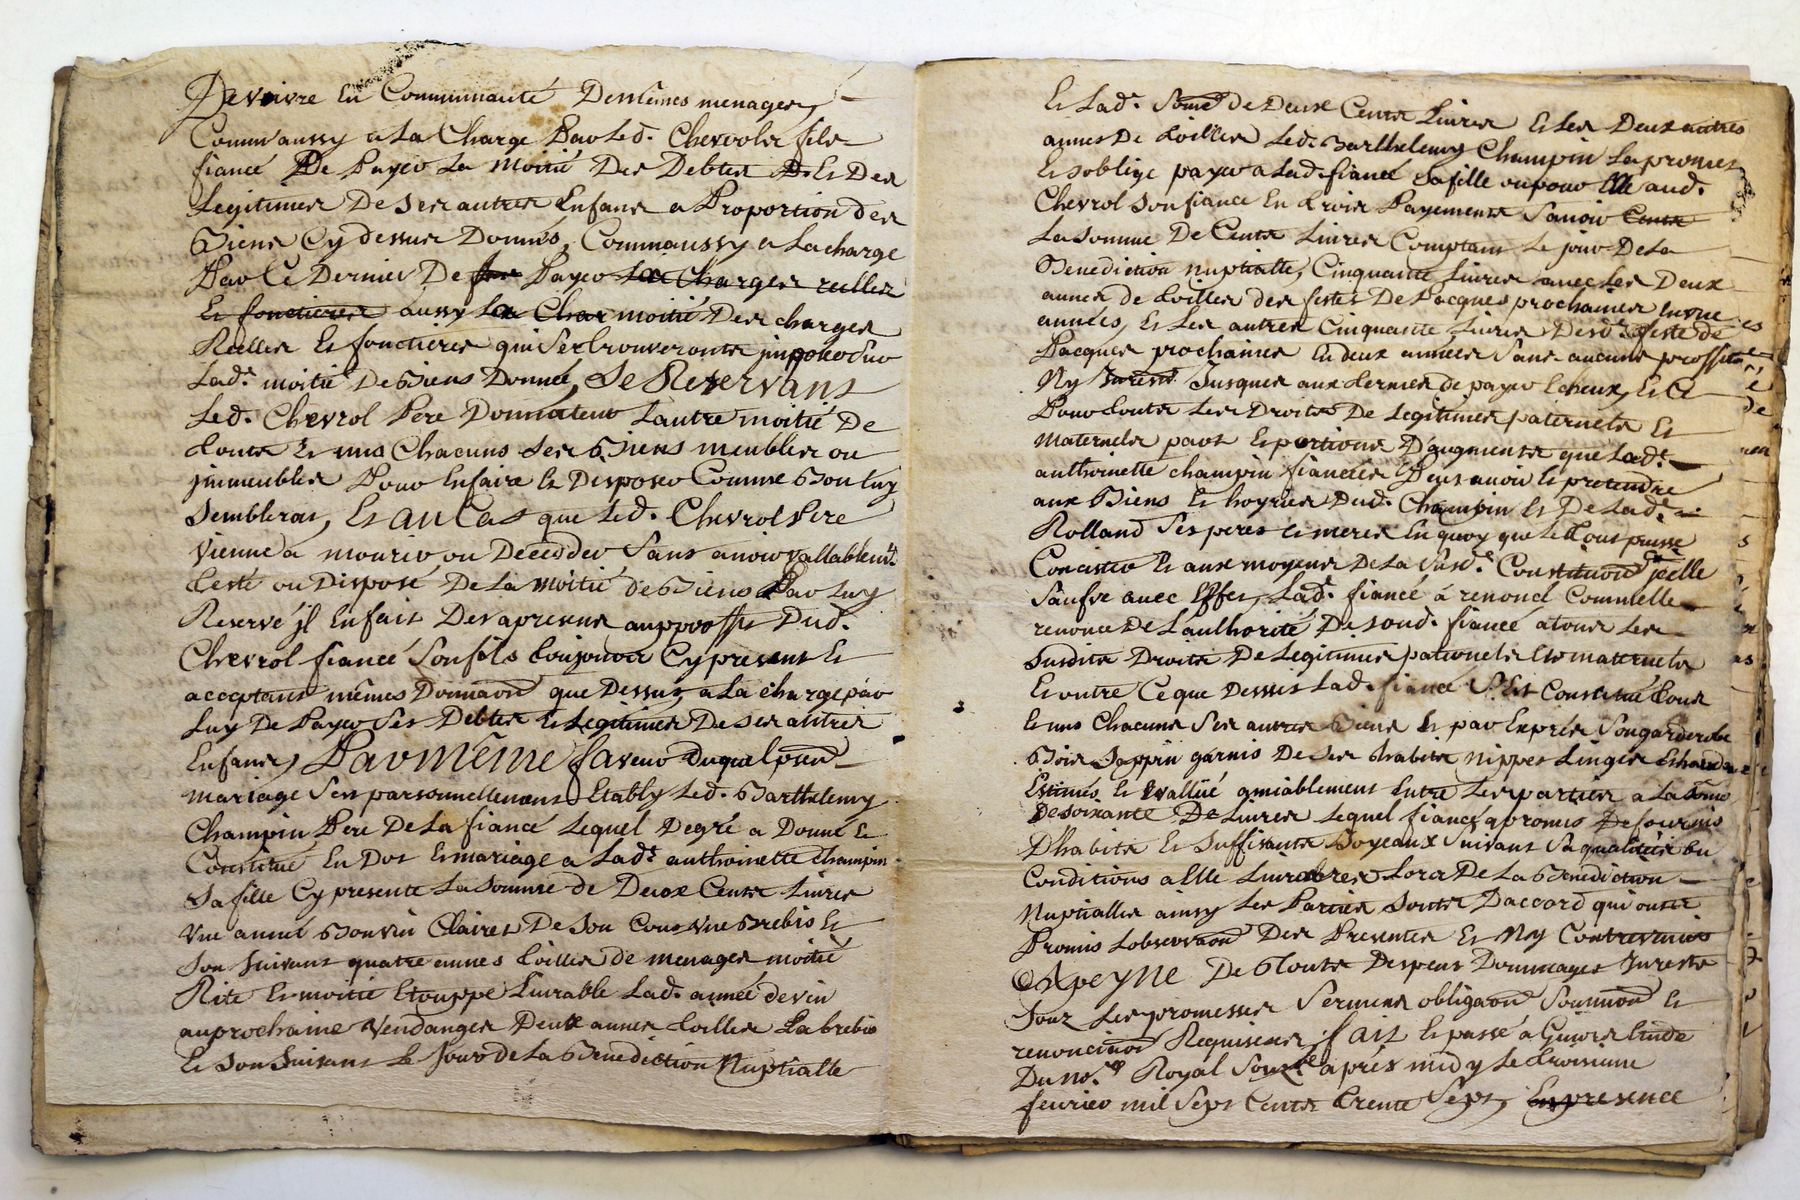 De vivre En Communauté Demêmes menages,
Comm'aussy a La Charge Par Led. Chevrol fils
fiancé De Payer La Moitié Des Debtes Et Des
Legitimes De Ses autres Enfans a Proportion des
Biens Cy dessus Donnés, Commaussy a La charge
Par Ce Dernier De Payer Les Charges reelles
Et fonctieres aussy La Char moitié Des charges
Reelles Et fonctieres qui Se trouveronts jmposé Sur
Lad.e moitié De Biens Donnée, Se Reservans
Led. Chevrol Pere Donnateur Lautre moitié De
touts Et uns Chacuns Ses Biens meubles ou
jmmeubles Pour Enfaire Et Disposer Comme Bon Luy
Semblerat, Et au Cas que Led. Chevrol Pere
Vienne a mourir ou Decedder Sans avoir vallablemt.
testé ou Disposé De La Moitié de Biens Par Luy
Reservé jl Enfait Desapresens auproffit Dud.
Chevrol fiancé Sonfils toujours Cy present Et
acceptant mêmes Donnaon que Dessus, a La charge par
Luy De Payer Ses Debtes Et Legitimes De Ses autres
Enfans, Par même faveur Duquel prent
mariage Sest personnellement Etably Led. Barthelemy
Champin Pere De La fiancé Lequel Degré a Donné Et
Constitué En Dot Et mariage a Lad.e anthoinette Champin
Sa fille Cy presente La Somme de Deux Cents Livres
Une année Bon vin Clairet De Son Cour Une Brebis Et
Son Suivant quatre annes toilles de menages moitié
Rite Et moitié Etouppe Livrable Lad. année de vin
auprochaine Vendanges Deux annes toilles La brebis
Et Son Suivant Le Jour de La Benediction Nuptialle
Et Lad.e Some de Deux Cents Livres Et Les Deux autres
annes De toilles Led. Barthelemy Champin La promet
Et soblige payer a Lad. fiancé Sa fille ou pour Elle aud.
Chevrol Son fiance En trois Payements Savoir Cents
La Somme De Cents Livres Comptant Le jour De La
Benediction nuptialle, Cinquante Livres avec Les Deux
aunes de toilles des festes De Pacques prochaines en une
années, Et Les autres Cinquante Livres Desd. feste de
Pacques prochaines En deux années Sans aucuns proffits
Ny Jnterest Jusques aux termes de payer Echeux, Et Ce
Pour touts Les Droits De Legitimes paternels Et
Maternels part Et portions D'augments que Lad.e
anthoinette champin fiancée Peut avoir Et pretendre
aux Biens Et hoyries Dud. Champin Et De Lad.e
Rolland Ses peres Et meres En quoy que Le tout puisse
Concister Et aux moyens De La Susd.e Constituion jcelle
Saufve avec Effet, Lad. fiancé á renoncé Commelle
renonce De L'authorité De Soud. fiancé a tous Les
Susdits Droits De Legitimes paternels Et maternels
Et outre Ce que Dessus Lad. fiancé S'est Constitué tous
Et uns Chacuns Ses autres Biens Et par Exprés Son garderobe
Bois Sappin garnis De Ses habits nippes Linges Et hardes
Estimés Et Evallué amiablement Entre Les parties a La Some
De Soixante De Livres Lequel fiancé a promis De fournir
D'habits Et Suffisants Joyeaux Suivant Sa qualité Et
Conditions a Elle Livrables Lors De La Benediction
Nuptialles ainsy Les Parties Sonts Daccord qui onts
Promis Lobservaon Des Presentes Et Ny Contrevenir
A Peyne De touts Despens Dommages Jnterests
Souz Les promesses Serments obligaons Soumions Et
renonciaons Requises, fait Et passé á Estude
Du no.re Royal Souz.né aprés midy Le troisieme
feuvrier mil Sept Cents trente Sept, En presence